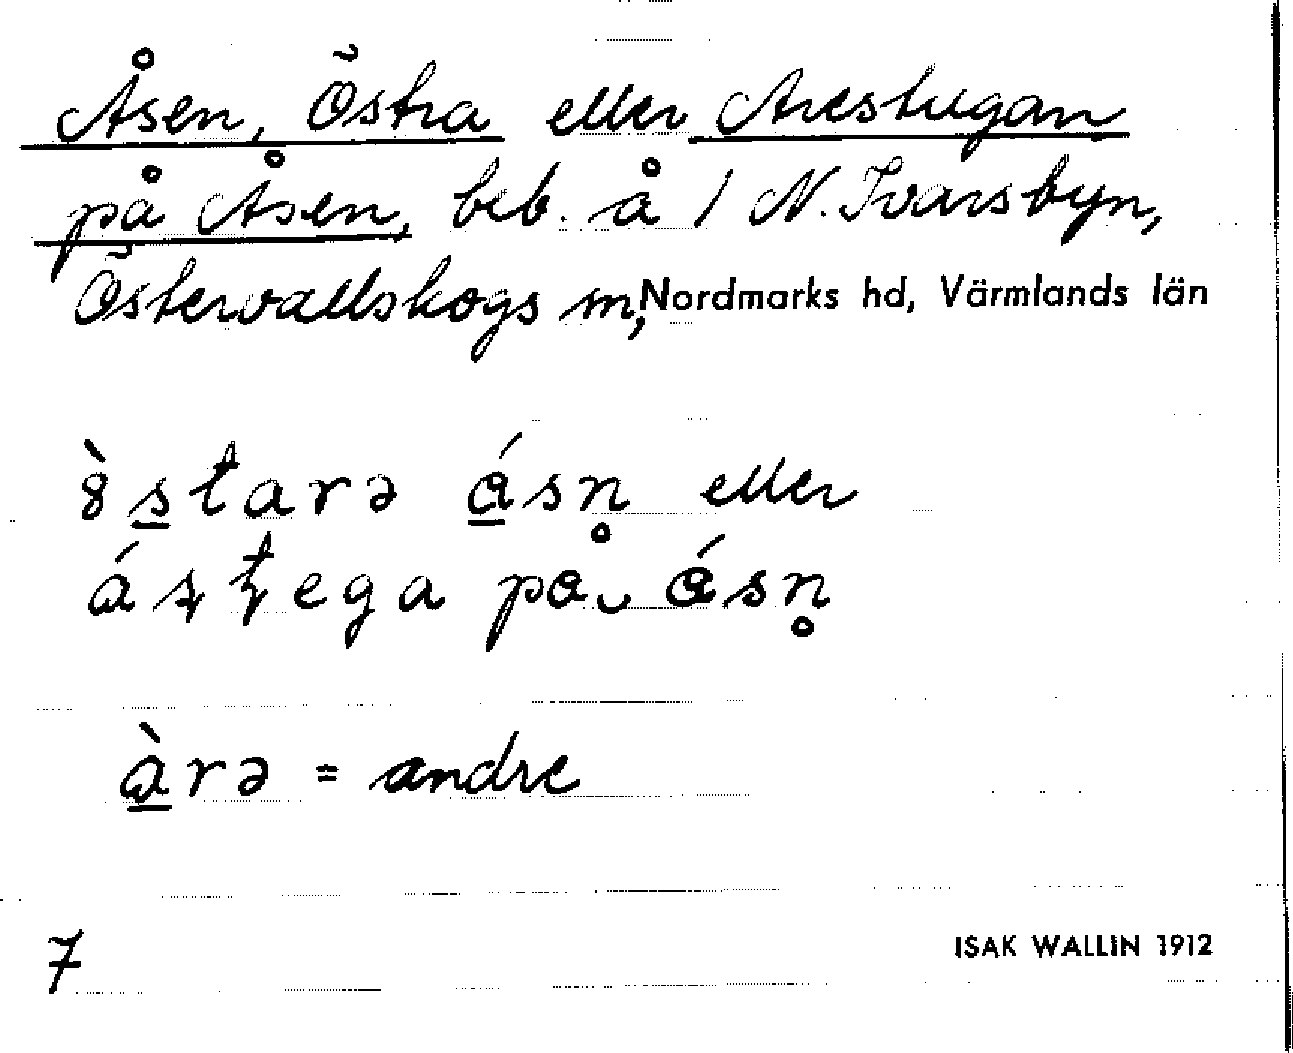 Åsen, Östra eller Arestugan
på Åsen, beb. å 1 N. Ivarsbyn,
Östervallskogs sn, Nordmarks hd, Värmlands län
eller
àrə = andre
7
ISAK WALLIN 1912